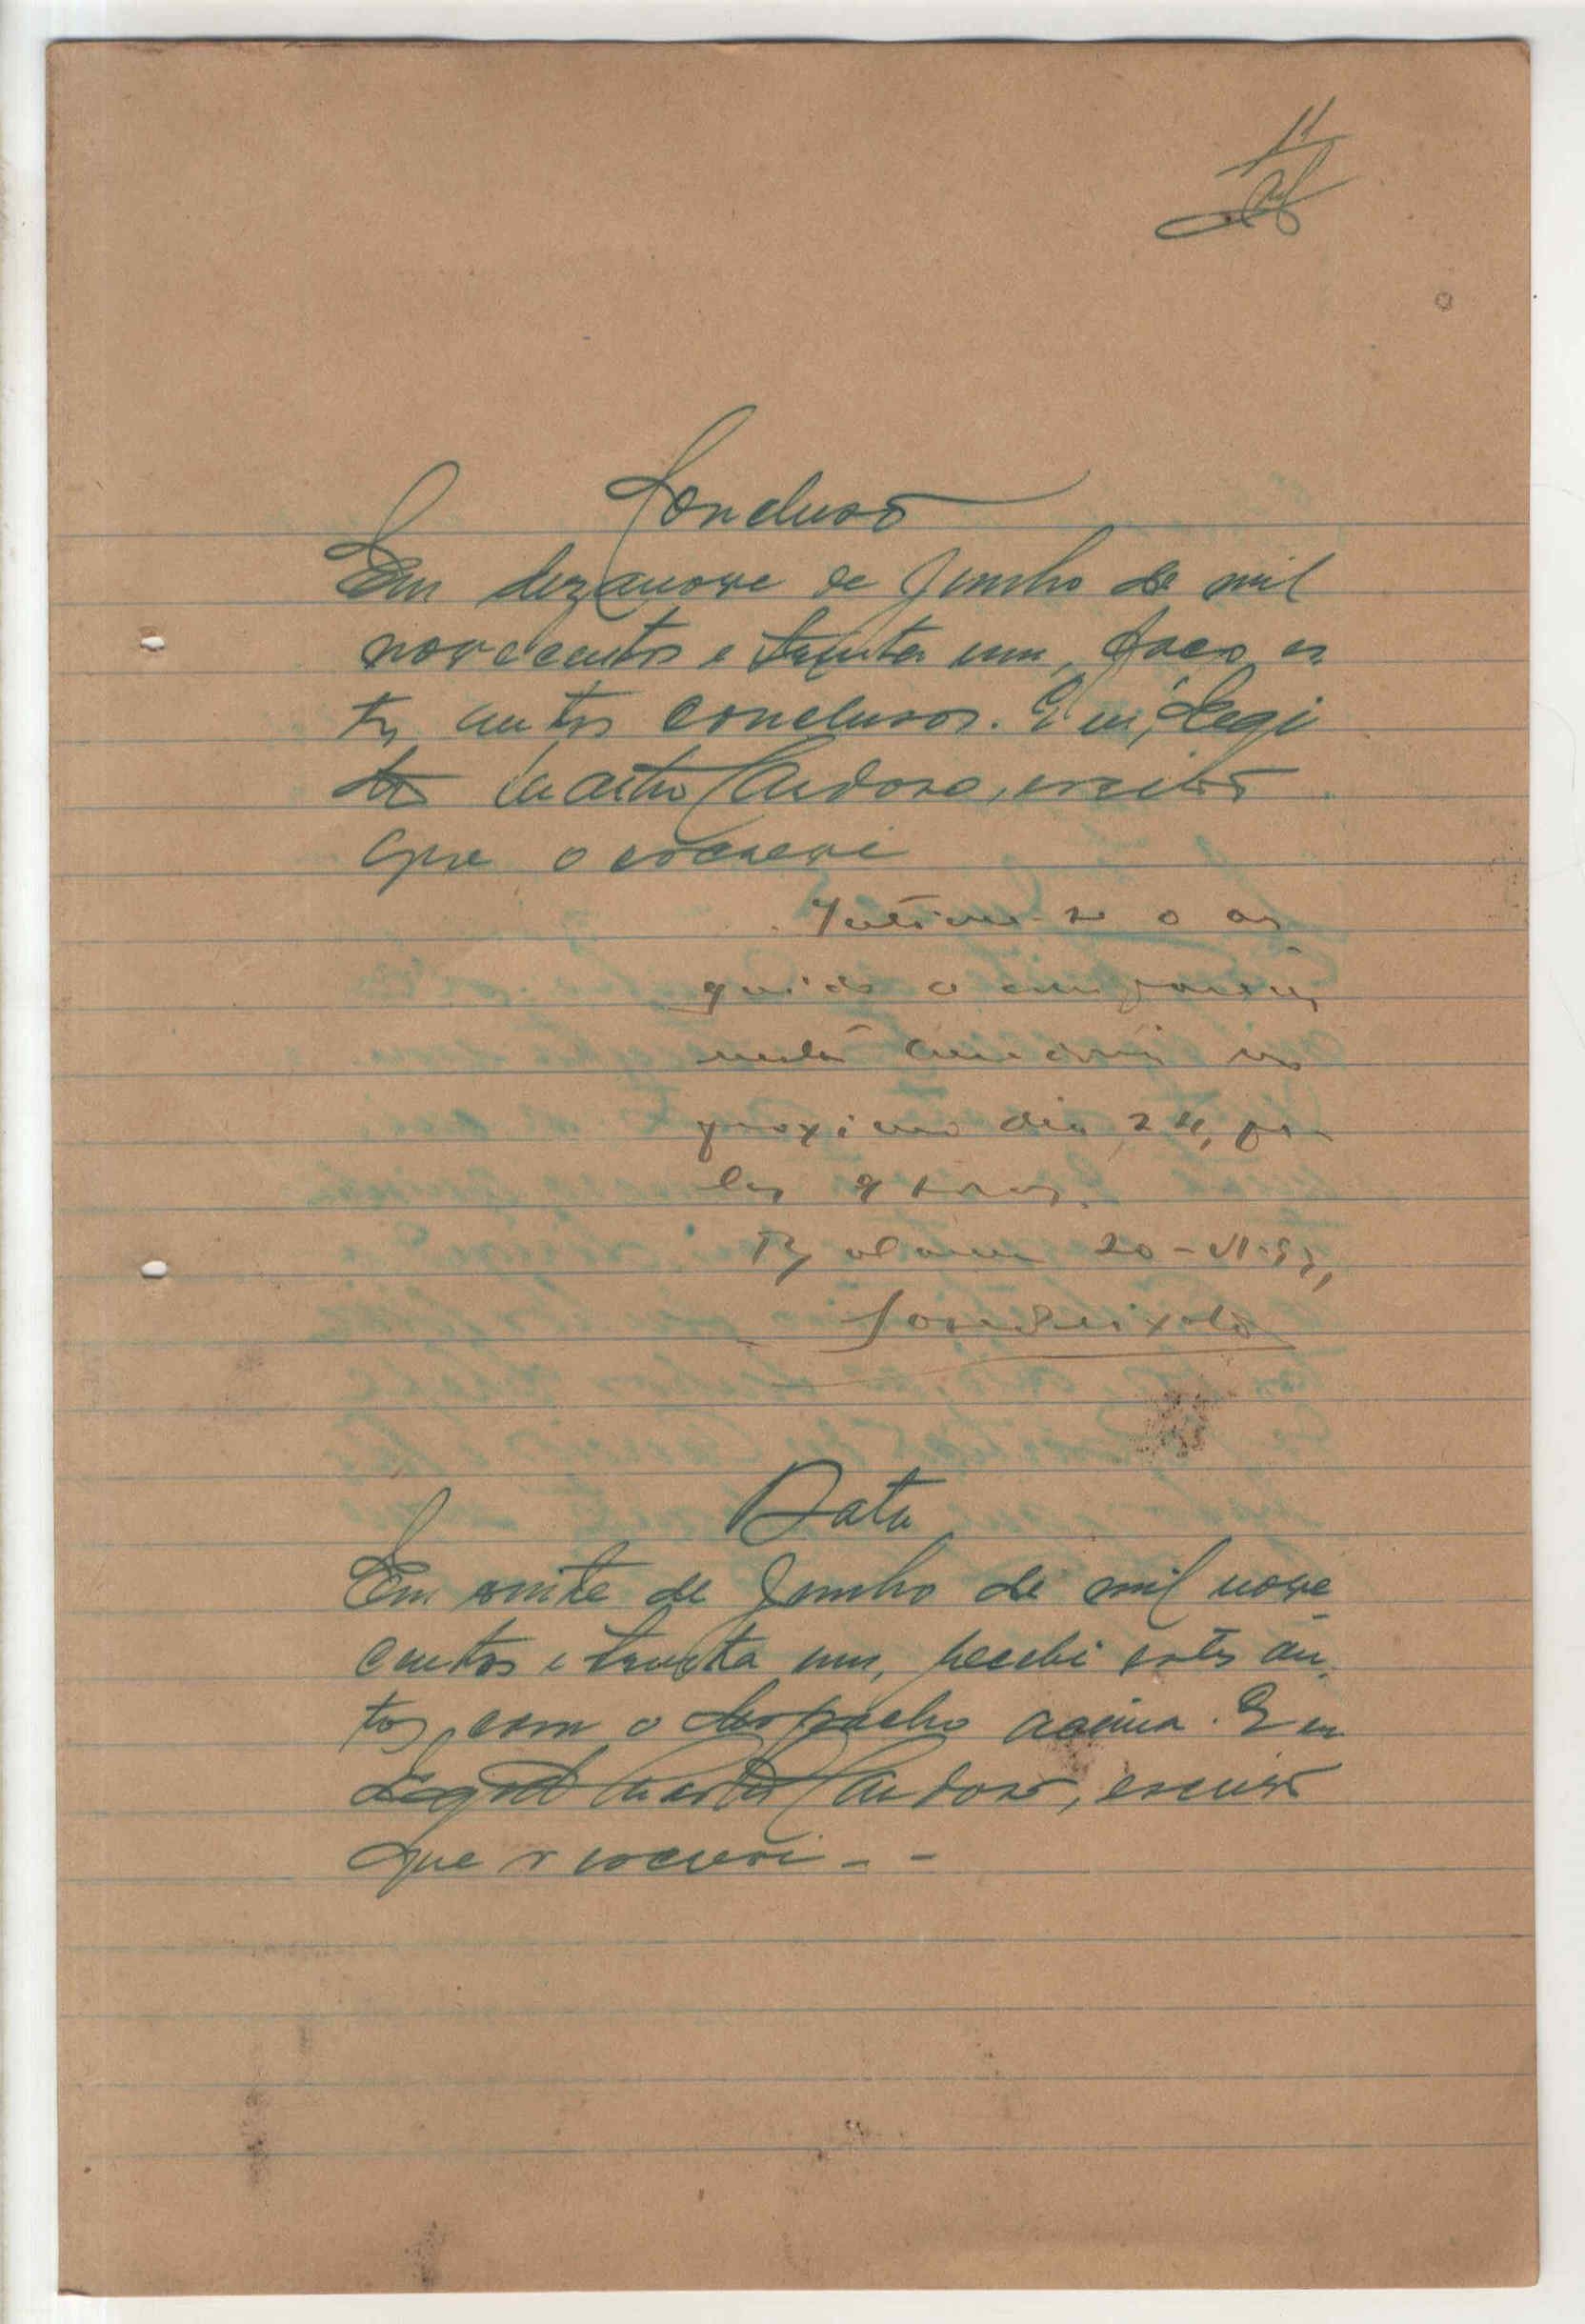 11
Concluso
Em dezanove de Junho de mil
novecentos e trinta um, faço es
tes autos conclusos. E eu,
Castro Cardoso, escrivão
que o escrevi
Intime-se o ar
guido a comparecer
nesta no
proximo dia 24, pe
las 9 horas.
20-VI-31,
José Peixoto
Data
Em vinte de Junho de mil nove
centos e trinta um, recebi estes au
tos com o despacho acima. E eu
Castro Cardoso, escrivão
que o escrevi - -